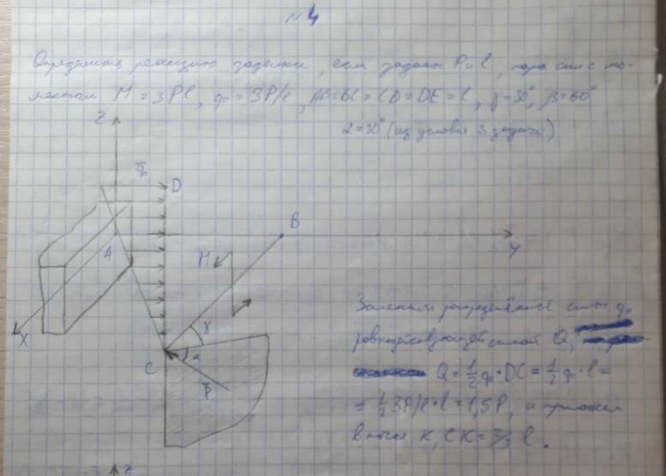 №4
Определить реакцию заделки, если заданы P и l, пара сил с мо-
ментом M = 3Pl, q₀ = 3P/l, AB=BC=CD=DE=l, γ=30°, β=60°
α=30° (из условия 3 задачи)
z
q
D
B
A
M
y
x
γ
C
α
P
Заменим распределённые силы q₀
равнодействующей силой Q,
Q = 1/2 q₀·DC = 1/2 q·l =
= 1/2 3P/l·l = 1,5P, и приложим
в точке K, CK = 2/3 l.
z